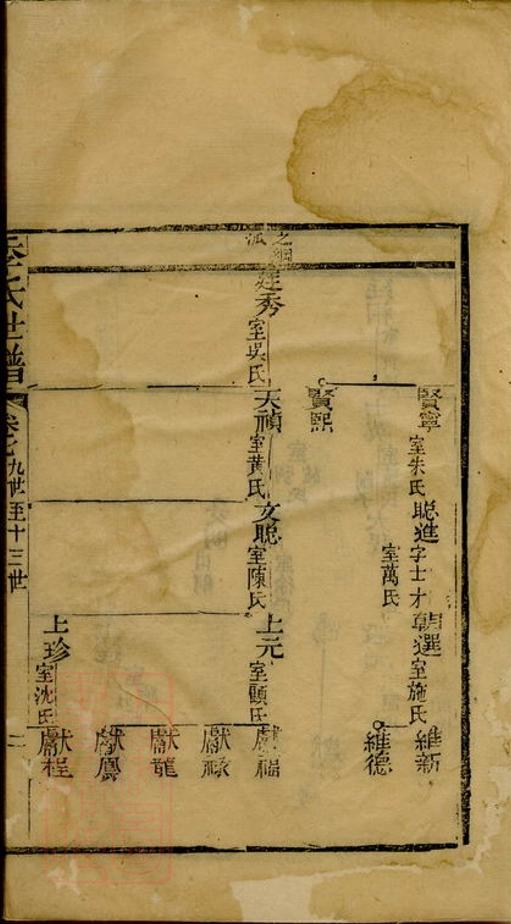 賢寧
室朱氏
聰進
字士才
室萬氏
朝選
室施氏
維新
維德
賢熙
之綱
派
廷秀
室吳氏
天禎
室黃氏
文聰
室陳氏
上元
室顧氏
獻福
獻祿
獻龍
獻
上珍
室沈氏
獻程
氏世譜
卷七
九世至十三世
二